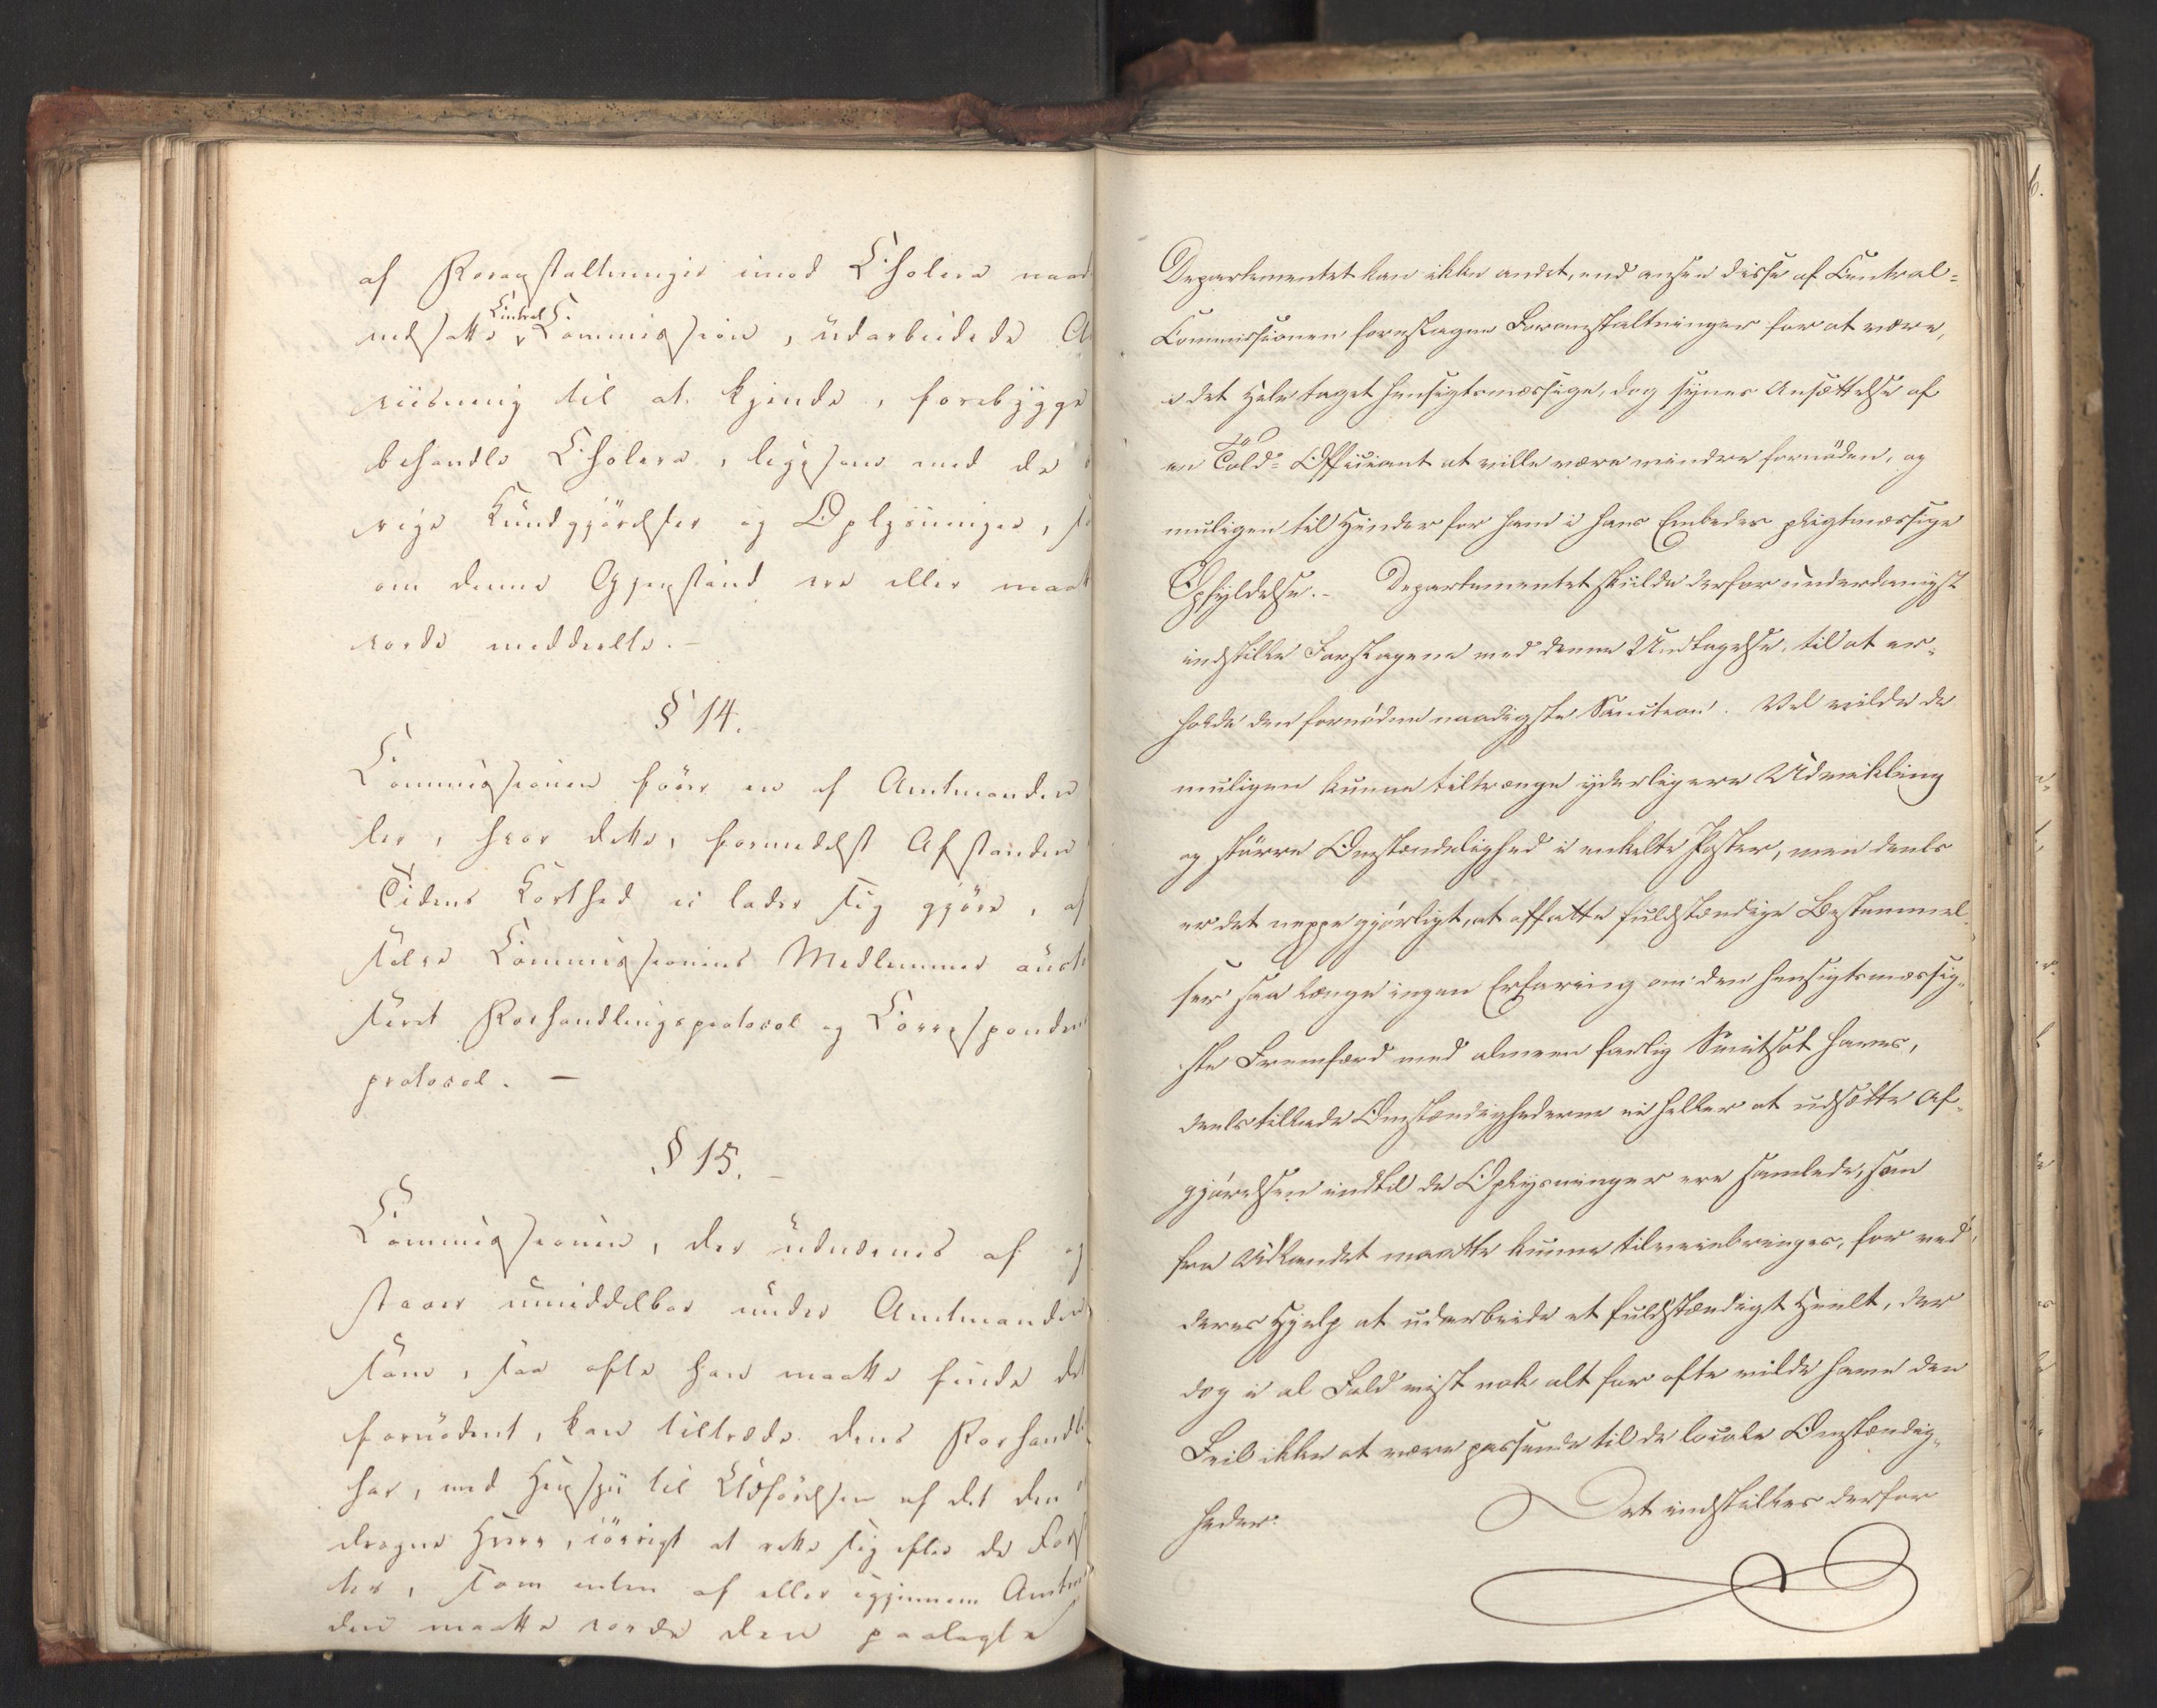 af Foranstaltninger imod Cholera
nedsatte Central C. Commission, udarbeidede
viisning til at kjende, forebygge
behandle Cholera, ligesom med de
rige Kundgjörelser og Oplysninger,
om denne Gjenstand ere eller
vorde meddeelte. -
§ 14.
Commissionen förer en af Amtmanden
ler, hvor dette, formedelst Afstanden
Tidens Korthed ei lader sig gjöre, af
Commissionens Medlemmer
Forhandlingsprotocol og
protocol. -
§ 15.
Commissionen, der udnævnes af og
staaer umiddelbar under Amtmanden
som, saa ofte han maatte finde det
fornödent, kan tiltræde dens
har, med Hensyn til Udförelsen af det den
dragne Hverv, iövrigt at rette sig efter de
ter, som enten af eller igjennem
den maatte vorde den paalagte
Departementet kan ikke andet, end ansee disse af Central-
Commissionen foreslagne Foranstaltninger for at være,
i det Hele taget hensigtsmæssige, dog synes Ansættelse af
en Told- Officiant at ville være mindre fornöden, og
muligen til Hinder for ham i hans Embedes pligtmæssige
Opfyldelse. - Departementet skulde derfor underdanigst
indstille Forslagene med denne Undtagelse, til at er-
holde den fornödne naadigste Sanction. Vel vilde de
muligen kunne tiltrænge yderligere Udvikling
og större Omstændelighed i enkelte Poster, men deels
er det neppe gjörligt, at affatte fuldstændige Bestemmel-
ser saa længe ingen Erfaring om den hensigtsmæssig-
ste Fremfærd med almeen farlig Smitsot haves,
deels tillade Omstændighederne ei heller at udsætte Af-
gjörelsen indtil de Oplysninger ere samlede, som
fra Udlandet maatte kunne tilveiebringes, for ved
deres Hjelp at udarbeide et fuldstændigt Heelt, der
dog i al Fald vist nok alt for ofte vilde have den
Feil ikke at være passende til de locale Omstændig-
heder. Det indstilles derfor